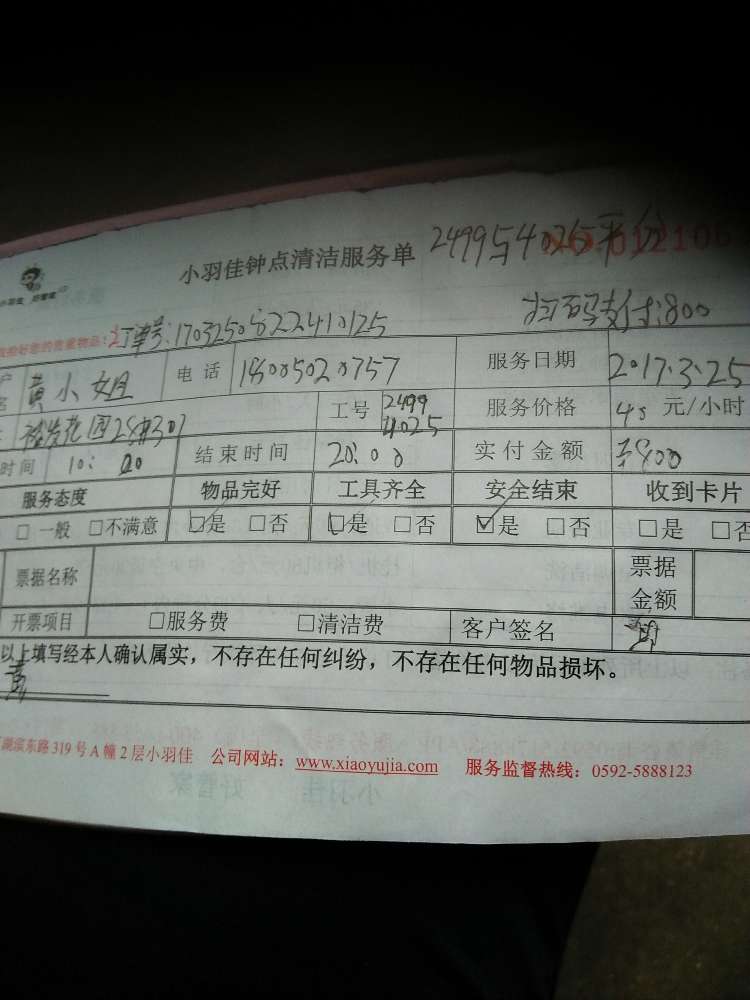 小羽佳钟点清洁服务单 2499与4025平分
小羽佳 好管家
扫码支付:800
您的贵重物品: 订单号:17032508222410125
黄小姐 电话 服务日期 2017.3.25
花园 工号 2499 4025 服务价格 40 元/小时
时间 10:00 结束时间 20:00 实付金额 800
服务态度 物品完好 工具齐全 安全结束 收到卡片
□ 一般 □不满意 ☑是 □否 ☑是 □否 ☑是 □否 □是 □否
票据名称 票据金额
开票项目 □服务费 □清洁费 客户签名
以上填写经本人确认属实，不存在任何纠纷，不存在任何物品损坏。
黄
东路319号A幢2层小羽佳 公司网站：www.xiaoyujia.com 服务监督热线：0592-5888123